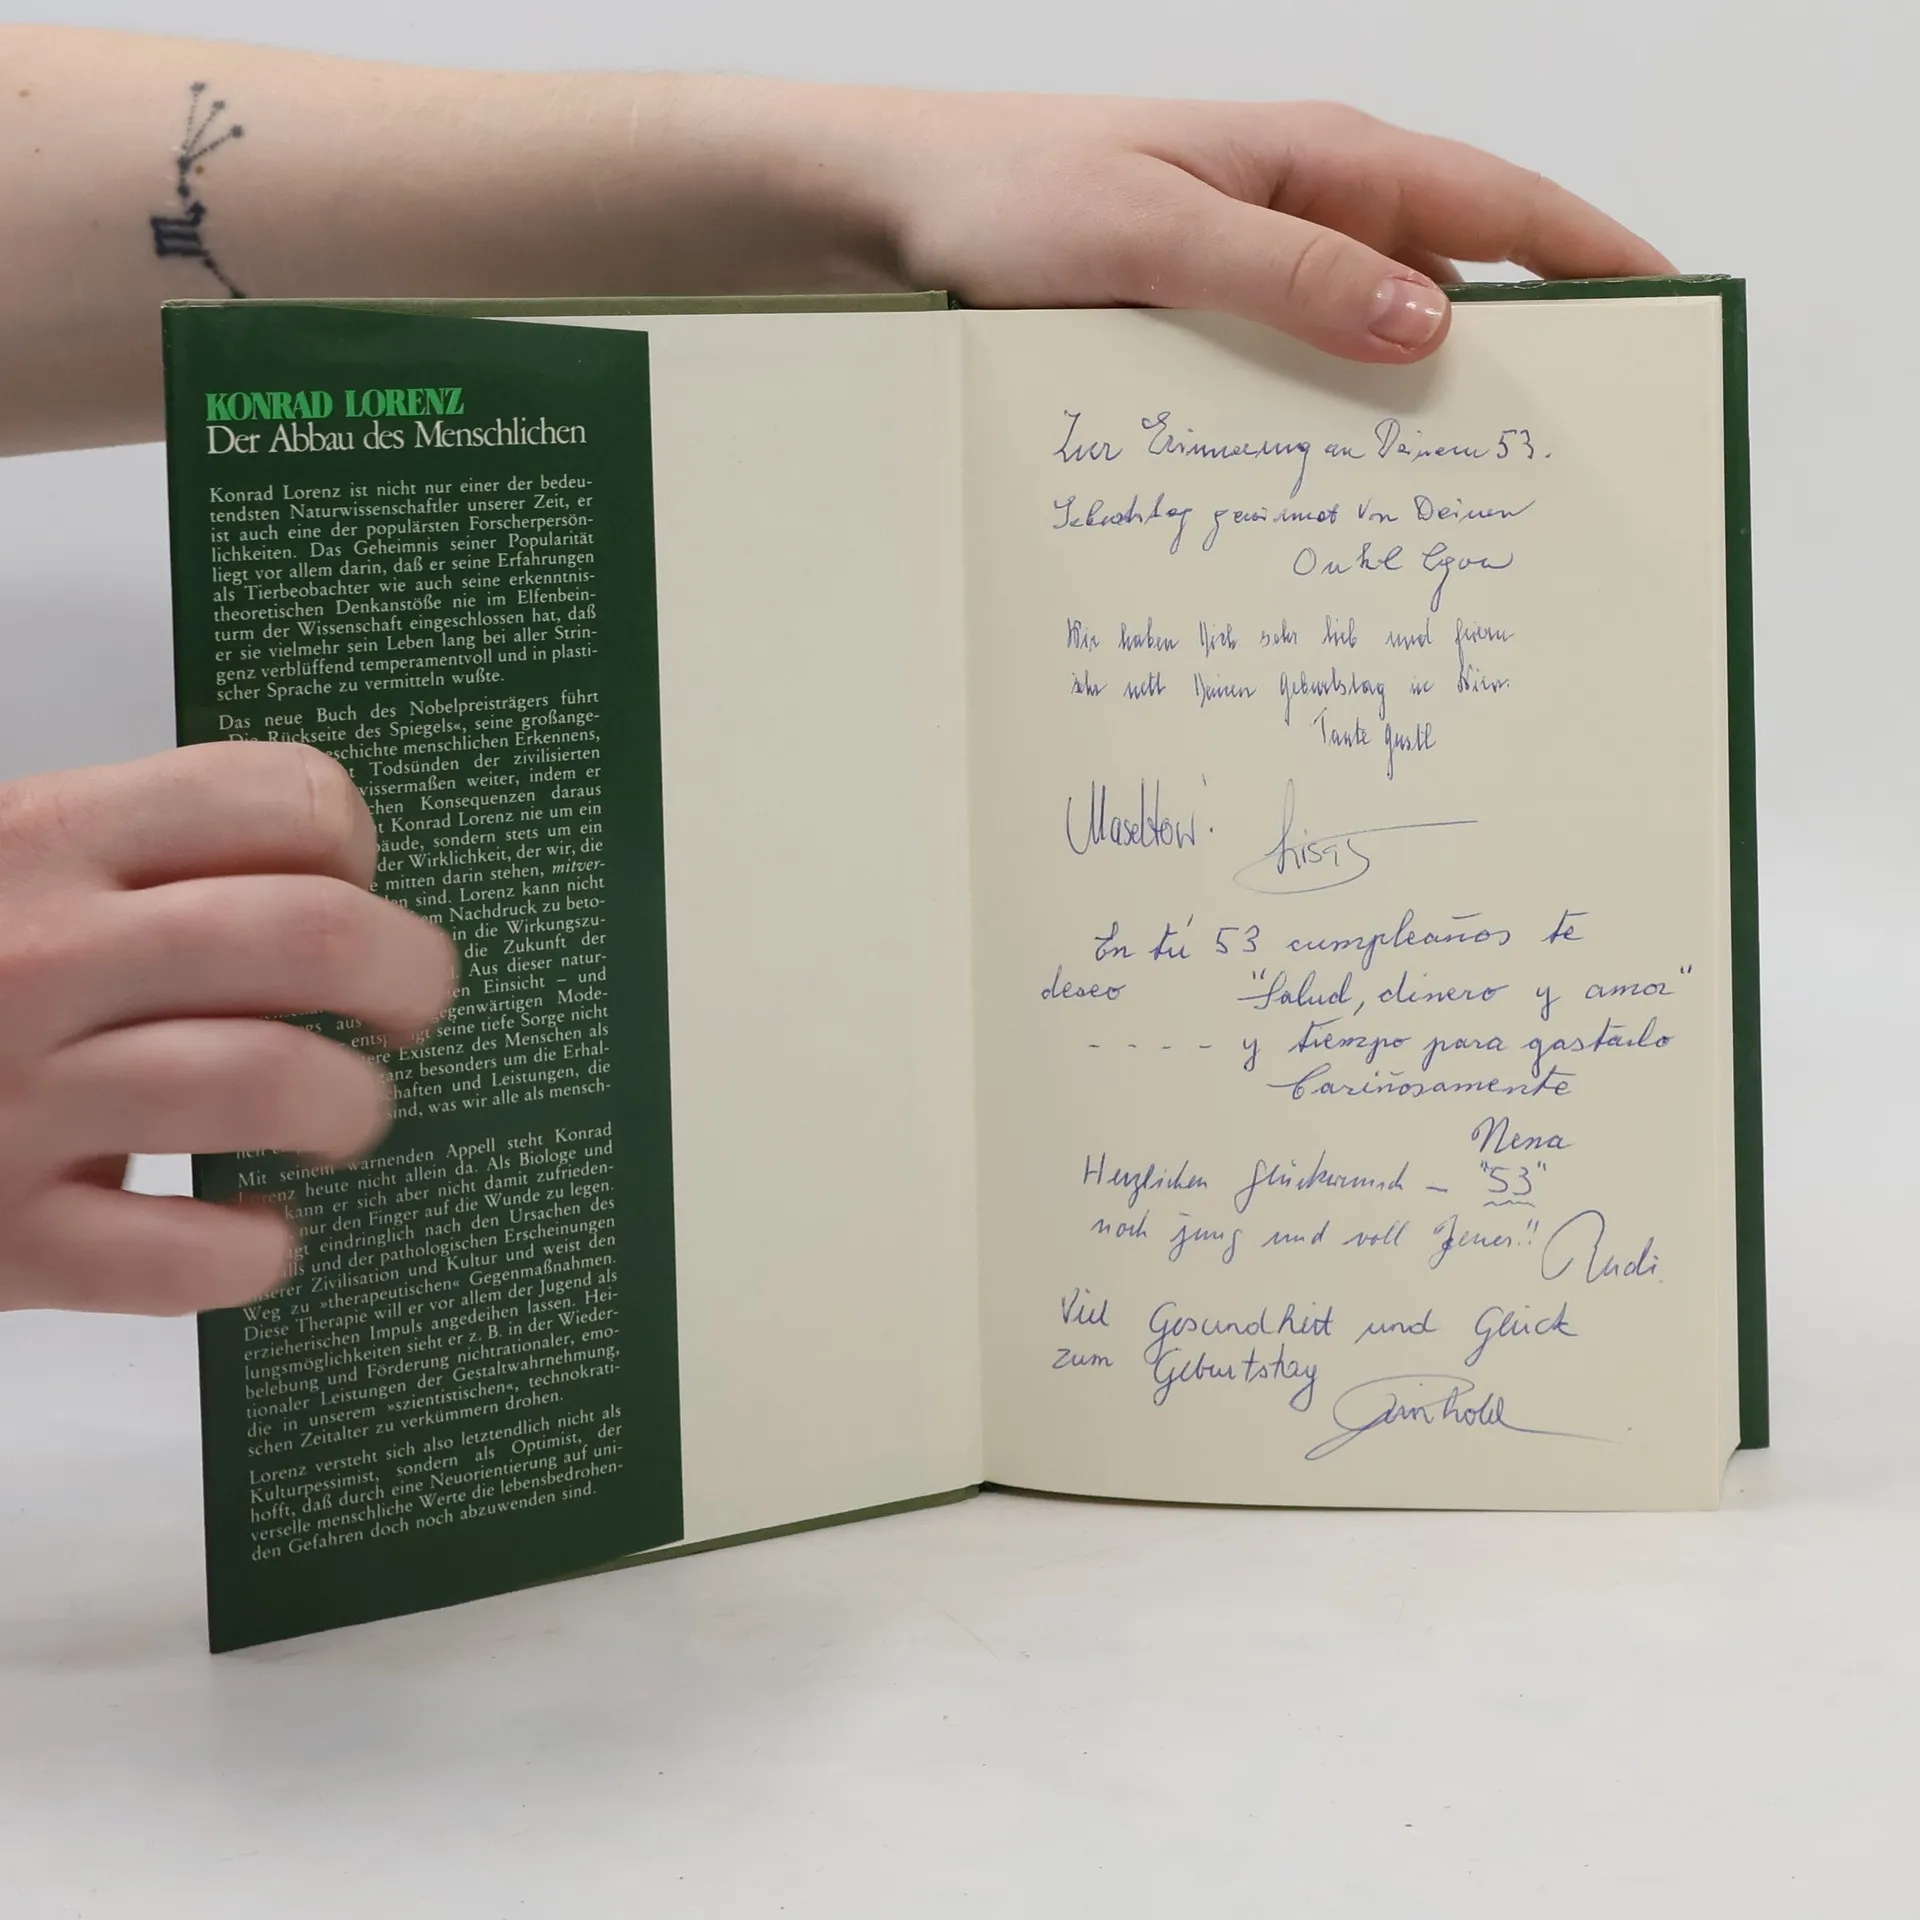 KONRAD LORENZ
Der Abbau des Menschlichen
Konrad Lorenz ist nicht nur einer der bedeu-
tendsten Naturwissenschaftler unserer Zeit, er
ist auch eine der populärsten Forscherpersön-
lichkeiten. Das Geheimnis seiner Popularität
liegt vor allem darin, daß er seine Erfahrungen
als Tierbeobachter wie auch seine erkenntnis-
theoretischen Denkanstöße nie im Elfenbein-
turm der Wissenschaft eingeschlossen hat, daß
er sie vielmehr sein Leben lang bei aller Strin-
genz verblüffend temperamentvoll und in plasti-
scher Sprache zu vermitteln wußte.
Das neue Buch des Nobelpreisträgers führt
Die Rückseite des Spiegels«, seine großange-
eschichte menschlichen Erkennens,
t Todsünden der zivilisierten
wissermaßen weiter, indem er
chen Konsequenzen daraus
t Konrad Lorenz nie um ein
bäude, sondern stets um ein
der Wirklichkeit, der wir, die
e mitten darin stehen, mitver-
en sind. Lorenz kann nicht
em Nachdruck zu beto-
in die Wirkungszu-
die Zukunft der
. Aus dieser natur-
en Einsicht – und
gegenwärtigen Mode-
gs aus
– entspringt seine tiefe Sorge nicht
ere Existenz des Menschen als
ganz besonders um die Erhal-
chaften und Leistungen, die
sind, was wir alle als mensch-
Mit seinem warnenden Appell steht Konrad
Lorenz heute nicht allein da. Als Biologe und
kann er sich aber nicht damit zufrieden-
nur den Finger auf die Wunde zu legen.
gt eindringlich nach den Ursachen des
lls und der pathologischen Erscheinungen
unserer Zivilisation und Kultur und weist den
Weg zu »therapeutischen« Gegenmaßnahmen.
Diese Therapie will er vor allem der Jugend als
erzieherischen Impuls angedeihen lassen. Hei-
lungsmöglichkeiten sieht er z. B. in der Wieder-
belebung und Förderung nichtrationaler, emo-
tionaler Leistungen der Gestaltwahrnehmung,
die in unserem »szientistischen«, technokrati-
schen Zeitalter zu verkümmern drohen.
Lorenz versteht sich also letztendlich nicht als
Kulturpessimist, sondern als Optimist, der
hofft, daß durch eine Neuorientierung auf uni-
verselle menschliche Werte die lebensbedrohen-
den Gefahren doch noch abzuwenden sind.
Zur Erinnerung an Deinem 53.
Geburtstag gewidmet von Deinen
Onkel Egon
Wir haben Dich sehr lieb und feiern
sehr nett Deinen Geburtstag in Wien.
Tante Gustl
Maseltow!
En tú 53 cumpleaños te
deseo "Salud, dinero y amor"
- - - - y tiempo para gastarlo
Cariñosamente
Nena
Herzlichen Glückwunsch – "53"
noch jung und voll Feuer!!
Rudi
Viel Gesundheit und Glück
zum Geburtstag